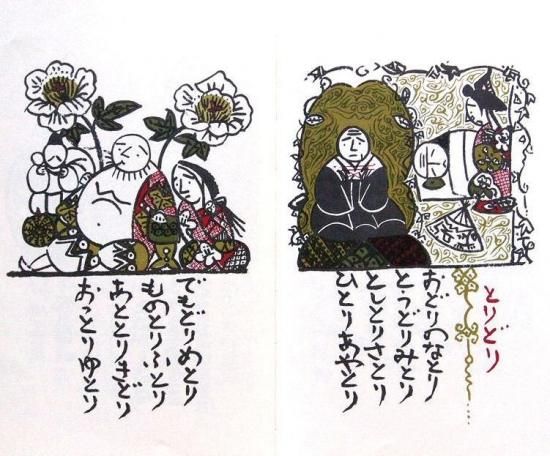 とりどり
おどりのなとり
とうどりみとり
としとりさとり
ひとりあやとり
でもどりめとり
ものとりふとり
あととりきどり
おっとりゆとり